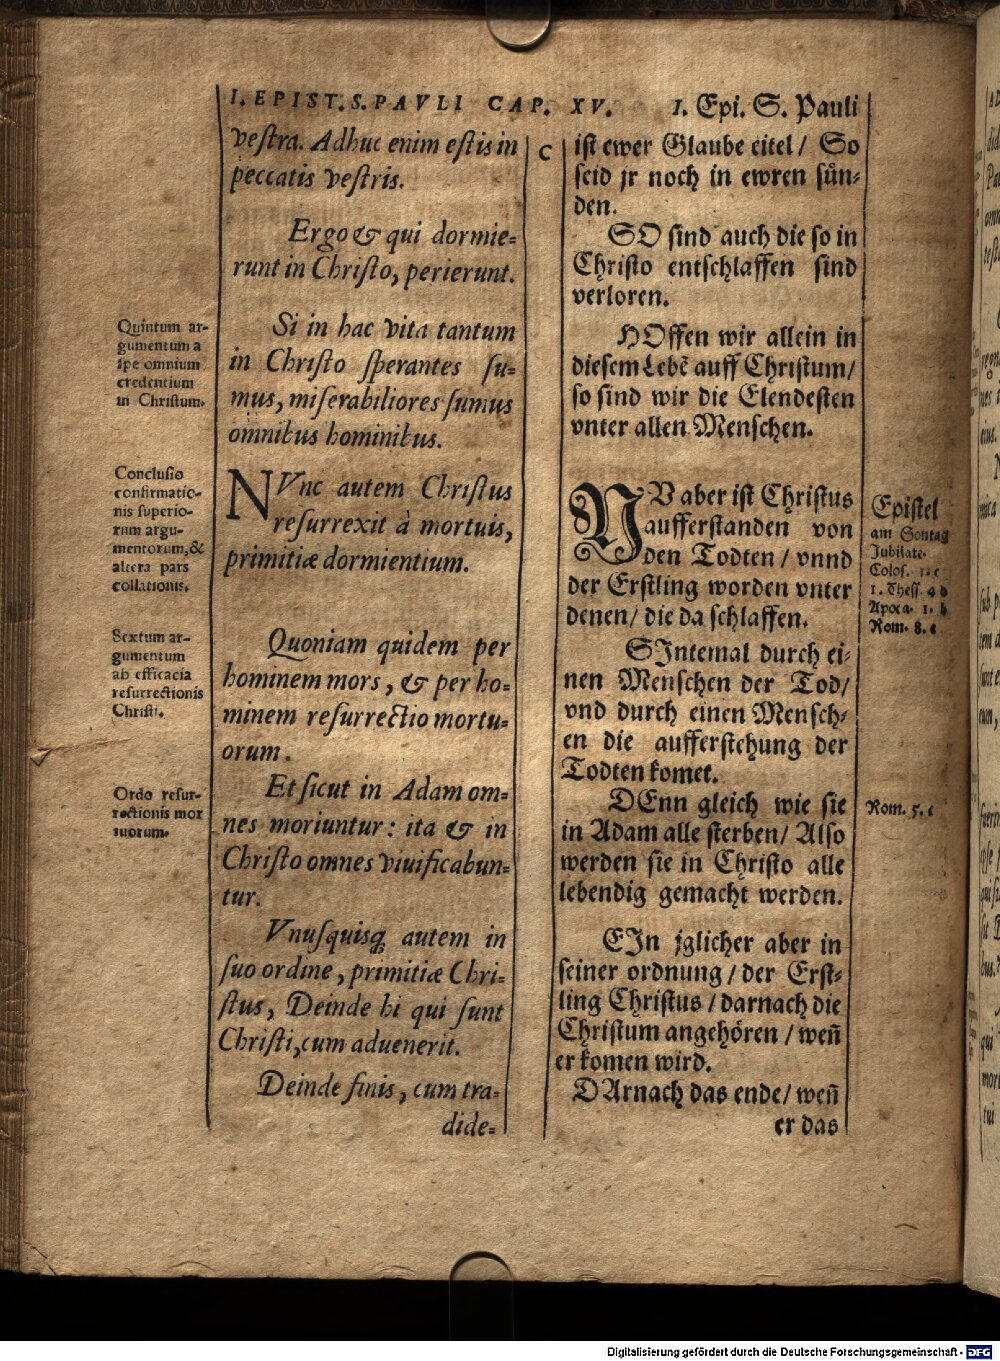 I. EPIST. S. PAVLI CAP. XV.
veſtra. Adhuc enim eſtis in
peccatis veſtris.
Ergo & qui dormie-
runt in Chriſto, perierunt.
Si in hac vita tantum
in Chriſto ſperantes ſu-
mus, miſerabiliores ſumus
omnibus hominibus.
NVnc autem Chriſtus
reſurrexit à mortuis,
primitiæ dormientium.
Quoniam quidem per
hominem mors, & per ho-
minem reſurrectio mortu-
orum.
Et ſicut in Adam om-
nes moriuntur: ita & in
Chriſto omnes viuificabun-
tur.
Vnuſquisq; autem in
ſuo ordine, primitiæ Chri-
ſtus, Deinde hi qui ſunt
Chriſti, cum aduenerit.
Deinde finis, cum tra-
dide-
Quintum ar-
gumentum a
ſpe omnium
credentium
in Chriſtum.
Concluſio
confirmatio-
nis ſuperio-
rum argu-
mentorum, &
altera pars
collationis.
Sextum ar-
gumentum
ab efficacia
reſurrectionis
Chriſti.
Ordo reſur-
rectionis mor
tuorum.
C
I. Epi. S. Pauli
iſt ewer Glaube eitel / So
ſeid jr noch in ewren ſuͤn-
den.
SO ſind auch die ſo in
Chriſto entſchlaffen ſind
verloren.
HOffen wir allein in
dieſem Lebē auff Chriſtum/
ſo ſind wir die Elendeſten
vnter allen Menſchen.
NV aber iſt Chriſtus
aufferſtanden von
den Todten / vnnd
der Erſtling worden vnter
denen / die da ſchlaffen.
SIntemal durch ei-
nen Menſchen der Tod/
vnd durch einen Menſch-
en die aufferſtehung der
Todten komet.
DEnn gleich wie ſie
in Adam alle ſterben / Alſo
werden ſie in Chriſto alle
lebendig gemacht werden.
EIn jglicher aber in
ſeiner ordnung / der Erſt-
ling Chriſtus / darnach die
Chriſtum angehören / weñ
er komen wird.
DArnach das ende / weñ
er das
Epiſtel
am Sontag
Jubilate.
Coloſ. 1. c
1. Theſſ. 4 b
Apoca. 1. b
Rom. 8. c
Rom. 5. c
Digitalisierung gefördert durch die Deutsche Forschungsgemeinschaft - DFG